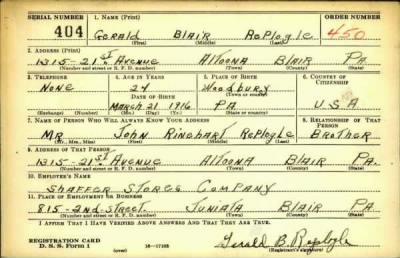 SERIAL NUMBER 1. NAME (Print) ORDER NUMBER
404 Gerald Blair Replogle 450
(First) (Middle) (Last)
2. ADDRESS (Print)
1315-21st Avenue Altoona Blair Pa.
(Number and street or R. F. D. number) (Town) (County) (State)
3. TELEPHONE 4. AGE IN YEARS 5. PLACE OF BIRTH 6. COUNTRY OF CITIZENSHIP
None 24 Woodbury
DATE OF BIRTH (Town or county)
March 21 1916 PA U.S.A
(Exchange) (Number) (Mo.) (Day) (Yr.) (State or country)
7. NAME OF PERSON WHO WILL ALWAYS KNOW YOUR ADDRESS 8. RELATIONSHIP OF THAT PERSON
Mr John Rinehart Replogle Brother
(Mr., Mrs., Miss) (First) (Middle) (Last)
9. ADDRESS OF THAT PERSON
1315-21st Avenue Altoona Blair Pa.
(Number and street or R. F. D. number) (Town) (County) (State)
10. EMPLOYER'S NAME
Shaffer Stores Company
11. PLACE OF EMPLOYMENT OR BUSINESS
815-2nd-Street. Juniata Blair Pa
(Number and street or R. F. D. number) (Town) (County) (State)
I AFFIRM THAT I HAVE VERIFIED ABOVE ANSWERS AND THAT THEY ARE TRUE.
REGISTRATION CARD
D. S. S. Form 1 (over) Gerald B. Replogle
(Registrant's signature)